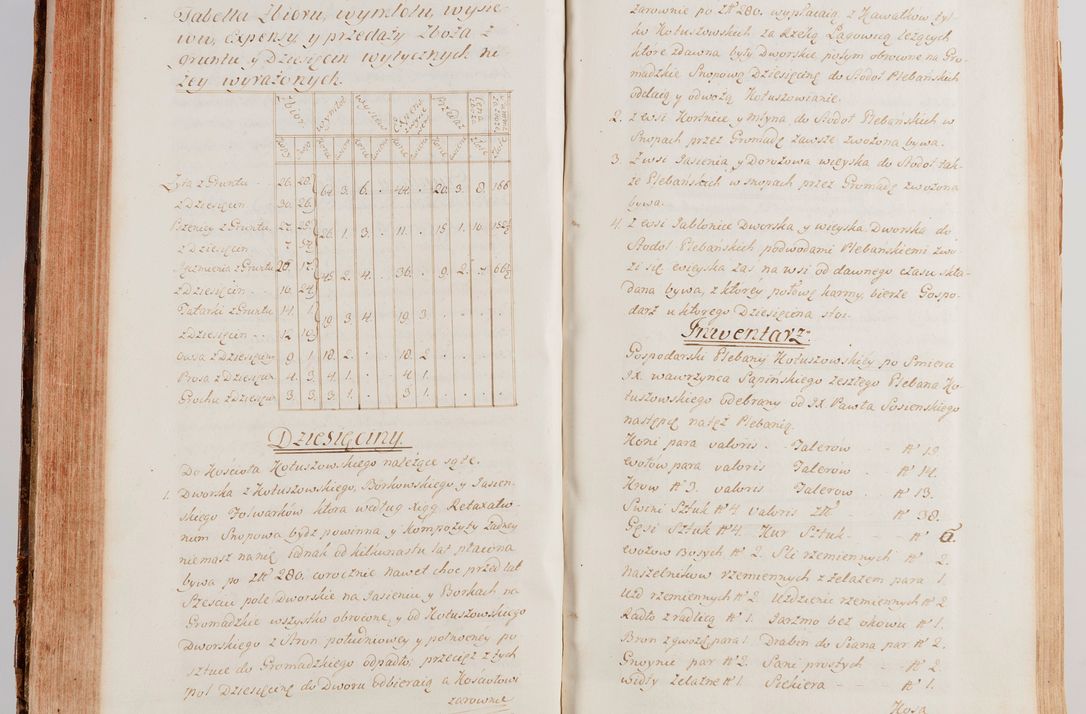 Tabella Zbioru, wymłotu, wysie-
wu, Expensy y przedaży Zboża z
gruntu y Dziesięcin wytycznych ni-
żey wyrażonych.
Zbior wymłot wysiew Expens przedaż Cena
Żyta z Gruntu 26. 20. 64. 3. 6. . 44. . 20. 3. 8. 166
z Dziesięcin 30. 26.
Pszenicy z Gruntu 27. 26. 1. 3. . 11. . 15. 1. 10.
z Dziesięcin
Jęczmienia z Gruntu 20. 17. 45. 2. 4. . 36. . 9. 2. 7.
z Dziesięcin 16. 24.
Tatarki z Gruntu 14. 1. 19. 3. 4. . 19. 3. . . . .
z Dziesięcin 12.
Owsa z Dziesięcin 9. 1. 18. 2. . . 18. 2. . . . .
Prosa z Dziesięcin 4. 3. 4. 1. . . 4. 1. . . . .
Grochu z Dziesięcin 3. 3. 3. 1. . . 3. 1. . . . .
Dziesięciny.
Do Kościoła Kotuszowskiego należące są te.
1. Dworska z Kotuszowskiego, Borkowskiego y Jasien-
skiego Folwarków która według xiąg Retaxatio-
num Snopowa bydz powinna y kompozyty żadney
niemasz na nię. Jednak od kilkunastu lat płacona
bywa po Złt 280. corocznie nawet choc przed lat
Sześciu pole Dworskie na Jasieniu y Borkach na
Gromadzkie wszystko obrocone, y od Kotuszowskiego
Dworskiego z Stron południowey y połnocney po
sztuce do Gromadzkiego odpadło, przecięż z tych
pol Dziesięcinę do Dworu odbieraią a Kosciołowi
zarownie
zarownie po Złt 280. wypłacaią z Kawałkow tyl-
ko Kotuszowskich za Rzeką Łagowicą leżących
które zdawna były Dworskie potym obrocone na Gro-
madzkie Snopową Dziesięcinę do Stodoł Plebańskich
oddaią y odwożą Kotuszowianie.
2. Z wsi Korlnicy y Młyna do Stodoł Plebańskich w
Snopach przez Gromadę zawsze zwożona bywa.
3. Z wsi Jasienia y Dorozowa wieyska do Stodoł tak-
że Plebańskich w snopach przez Gromadę zwożona
bywa.
4. Z wsi Jabłonice Dworska y wieyska Dworska do
Stodoł Plebańskich podwodami Plebańskiemi zwo-
zi się wieyska zas na wsi od dawnego czasu skła-
dana bywa, z ktorey połowę karmy, bierze Gospo-
darz u ktorego Dziesięcina stoi.
Inwentarz:
Gospodarski Plebanij Kotuszowskiey po Smierci
JX. Wawrzynca Sapińskiego zeszłego Plebana Ko-
tuszowskiego odebrany od JX Pawła Sosienskiego
następcę na też Plebanią.
Koni para valoris . . Talerow . . № 19.
Wołow para valoris Talerow . . № 14.
Krow № 3. valoris Talerow . . № 13.
Swini Sztuk № 4 valoris Złt № 38.
Gęsi Sztuk № 4. Kur Sztuk . . № 6.
Wozow Bosych № 2. Sli rzemiennych № 2.
Naszelnikow rzemiennych z żelazem para 1.
Uzd rzemiennych № 2 Uzdzienic rzemiennych № 2
Radło z radlicą № 1. Jarzmo bez okowu № 1.
Bron z gwozd para 1 Drabin do Siana par № 2.
Gnoynic par № 2. Sani prostych . . № 2.
Widły żelazne № 1. Siekiera . . № 1.
Kosa